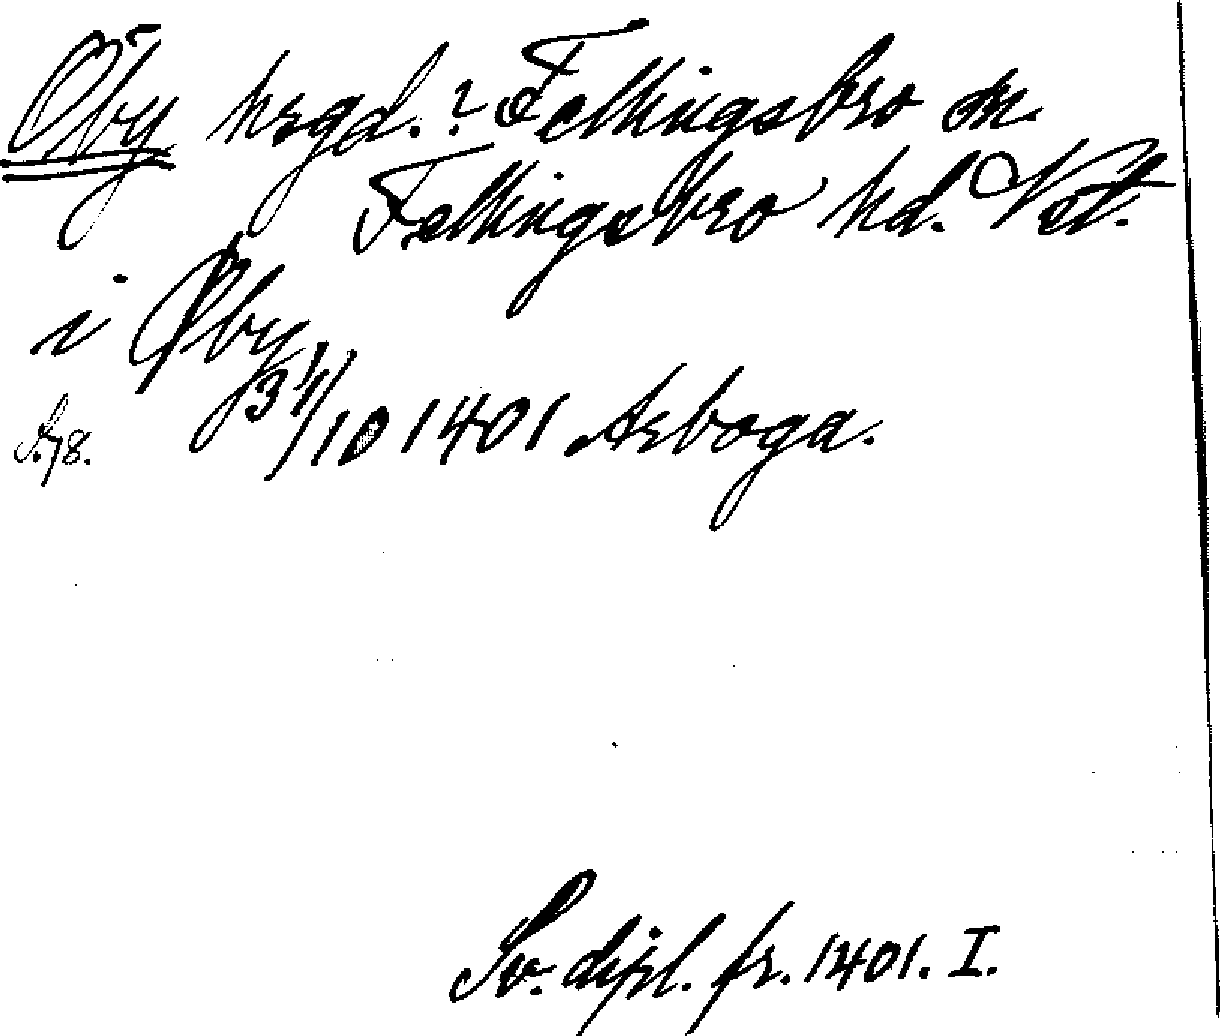 Öby hrgd.? Fellingsbro sn.
Fellingsbro hd. Vstl.
i Øby
S. 78. 31/10 1401 Arboga.
Sv. dipl. fr. 1401. I.